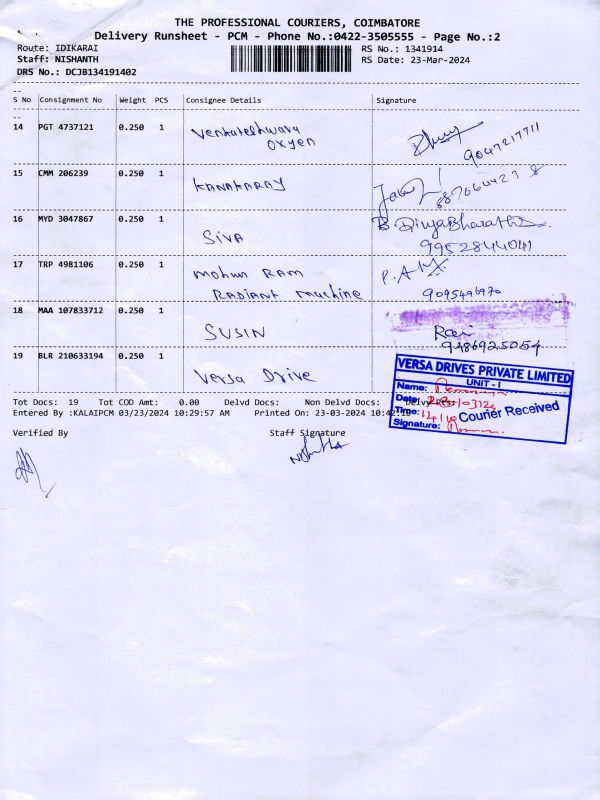 THE PROFESSIONAL COURIERS, COIMBATORE
Delivery Runsheet - PCM - Phone No.:0422-3505555 - Page No.:2
Route: IDIKARAI RS No.: 1341914
Staff: NISHANTH RS Date: 23-Mar-2024
DRS No.: DCJB134191402
S No Consignment No Weight PCS Consignee Details Signature
14 PGT 4737121 0.250 1 Venkateshwara
oxyen
9047217711
15 CMM 206239 0.250 1 KANAKARAJ
16 MYD 3047867 0.250 1 SIVA B. DivyaBharathi
9952844041
17 TRP 4981106 0.250 1 Mohun RAM
RADIANT machine 9095496970
18 MAA 107833712 0.250 1 SUSIN
9486925054
19 BLR 210633194 0.250 1 Versa Drive
VERSA DRIVES PRIVATE LIMITED
UNIT - I
Name:
Date:
Time: Courier Received
Signature:
Tot Docs: 19 Tot COD Amt: 0.00 Delvd Docs: Non Delvd Docs:
Entered By :KALAIPCM 03/23/2024 10:29:57 AM Printed On: 23-03-2024
Verified By Staff Signature